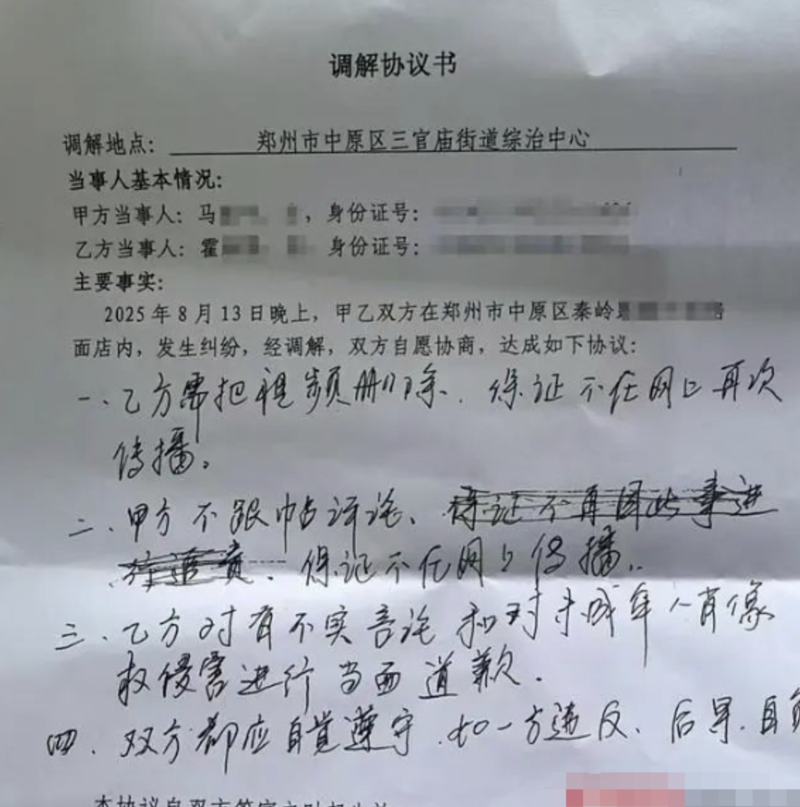 调解协议书
调解地点： 郑州市中原区三官庙街道综治中心
当事人基本情况：
甲方当事人：马 ，身份证号：
乙方当事人：霍 身份证号：
主要事实：
2025年8月13日晚上，甲乙双方在郑州市中原区秦岭
面店内，发生纠纷，经调解，双方自愿协商，达成如下协议：
一、乙方需把视频删除、保证不在网上再次
传播。
二、甲方不跟帖评论、保证不再因此事进
行追责、保证不在网上传播。
三、乙方对有不实言论和对未成年人肖像
权侵害进行当面道歉.
四、双方都应自觉遵守.如一方违反、后果自
本协议自双方签字